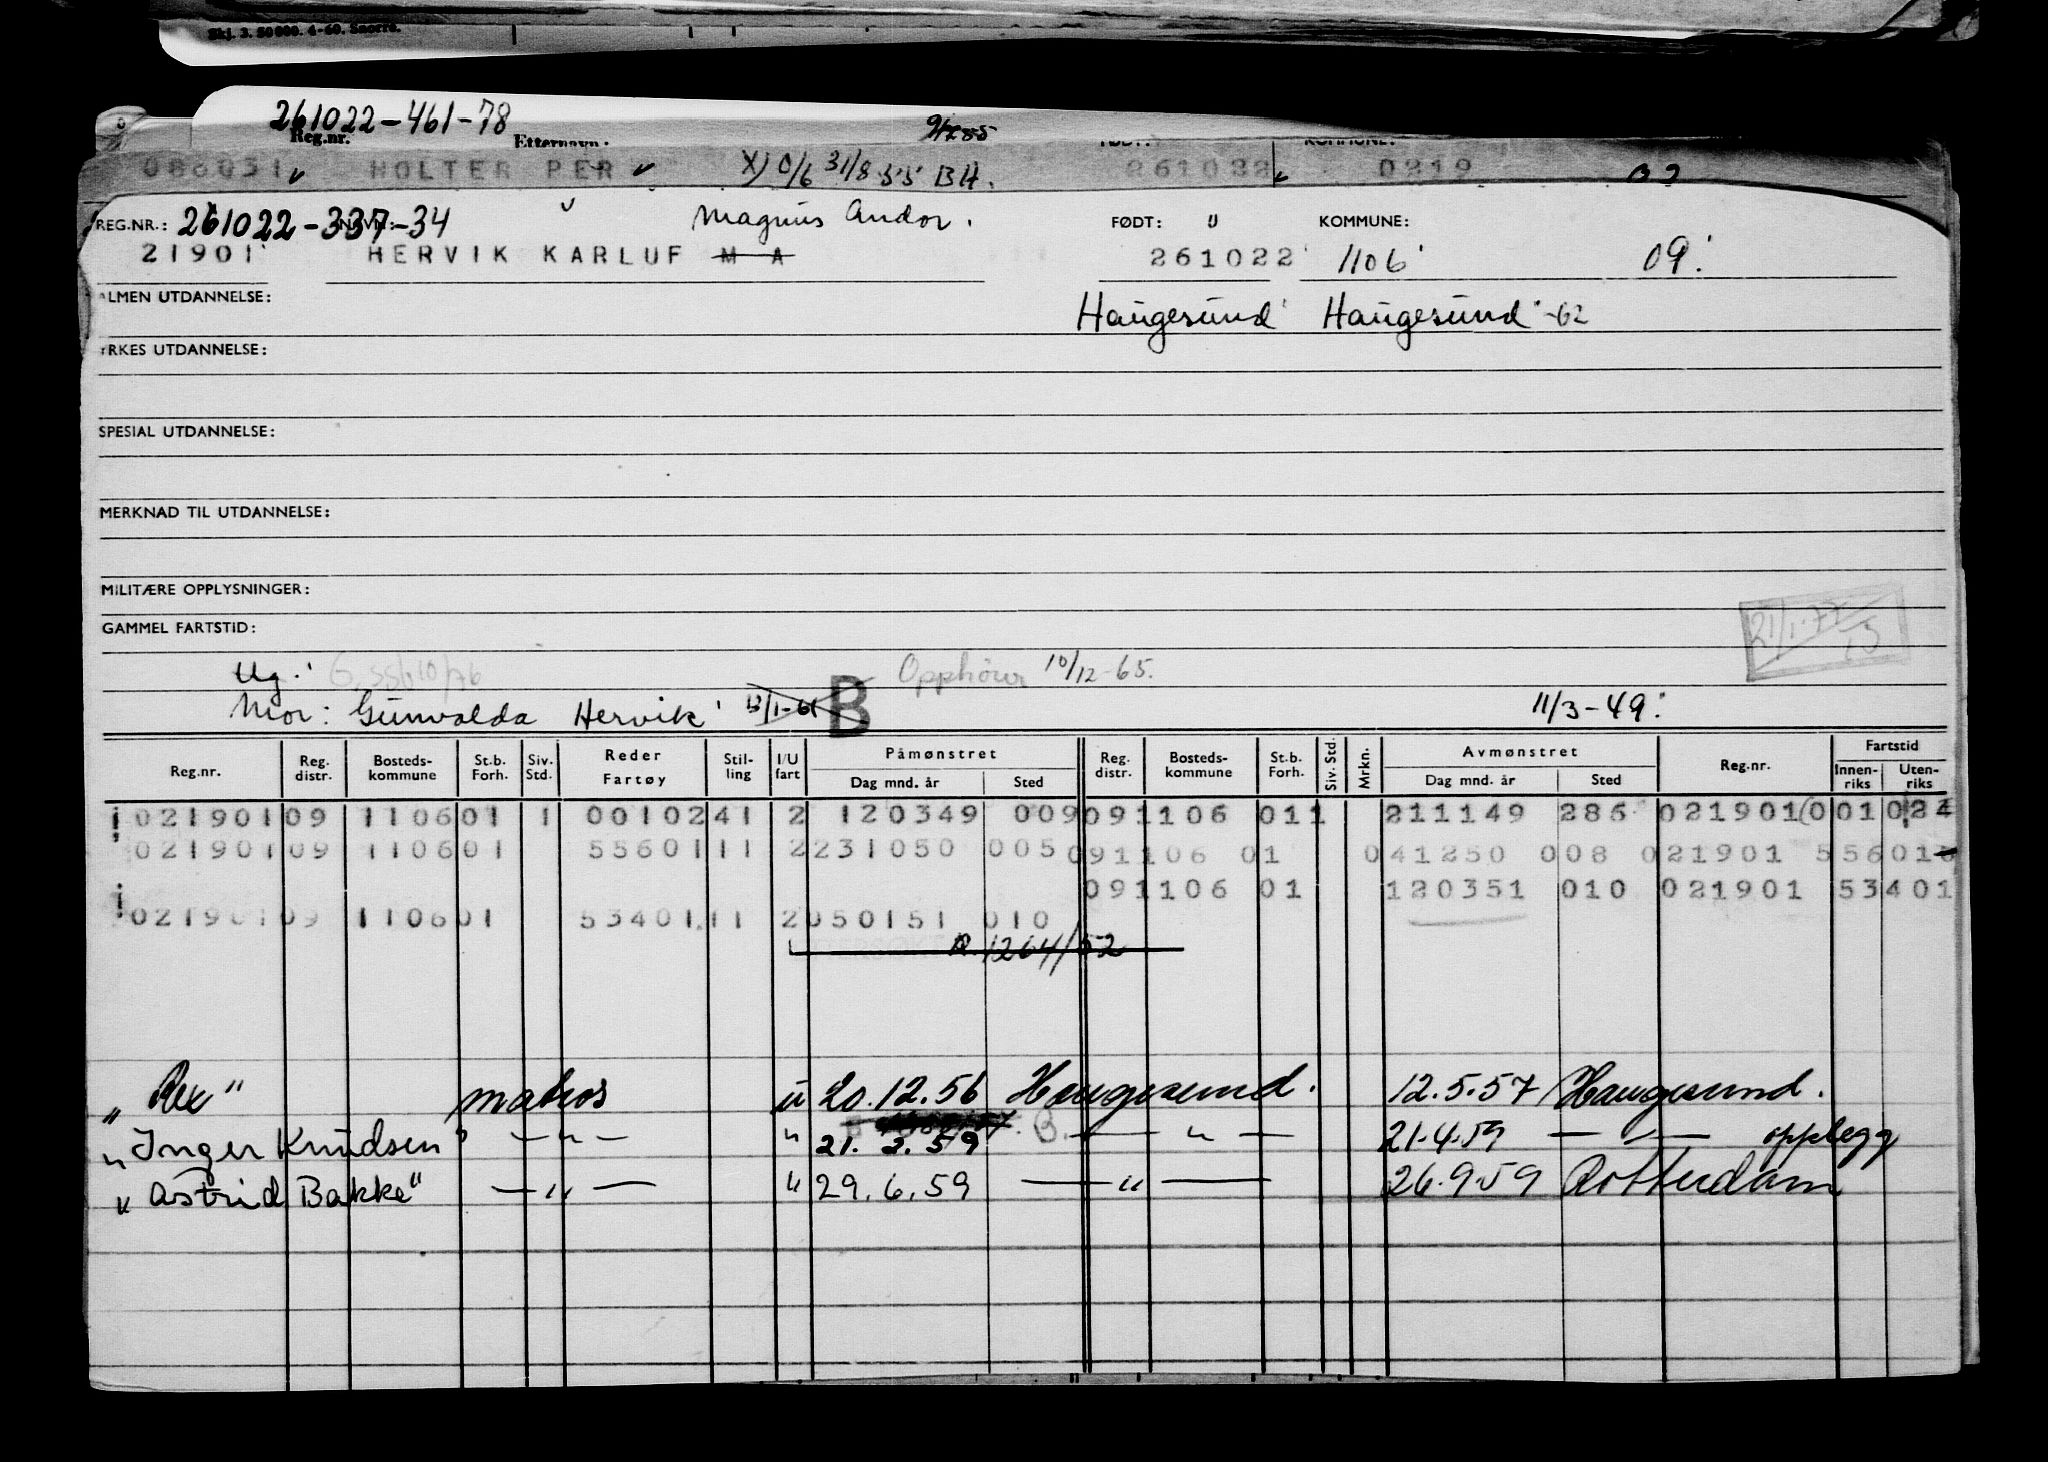 Skj. 3. 50000. 4-60. Snorre.
261022-461-78
Reg.nr. Etternavn:
086051 HOLTER PER X) 0/6 31/8 55 BH. 261022 0219
REG.NR.: 261022-337-34 Magnus Andor. FØDT: " KOMMUNE:
21901 HERVIK KARLUF M A 261022 1106 09
ALMEN UTDANNELSE: Haugesund Haugesund -62
YRKES UTDANNELSE:
SPESIAL UTDANNELSE:
MERKNAD TIL UTDANNELSE:
MILITÆRE OPPLYSNINGER:
GAMMEL FARTSTID:
21/1-77
Ug. Opphører 10/12-65.
Mor: Gunvalda Hervik 13/1-61 B 11/3-49
Reg.nr. Reg. distr. Bosteds-kommune St.b. Forh. Siv. Std. Reder Fartøy Stil-ling I/U fart Påmønstret Dag mnd. år Sted Reg. distr. Bosteds-kommune St.b. Forh. Siv. Std. Mrkn. Avmønstret Dag mnd. år Sted Reg.nr. Fartstid Innen-riks Uten-riks
021901 09 1106 01 1 00102 41 2 120349 009 09 1106 01 1 211149 286 021901 001024
021901 09 1106 01 55601 11 2 231050 005 09 1106 01 041250 008 021901 55601
09 1106 01 120351 010 021901 53401
021901 09 1106 01 53401 11 2 050151 010
R. 1264/52
"Rex" matros u 20.12.56 Haugesund. 12.5.57 Haugesund.
"Inger Knudsen" —"— " 21. 2. 59 —"— 21.4.59 —"— opplegg
"Astrid Bakke" —"— " 29. 6. 59 —"— 26.9.59 Rotterdam